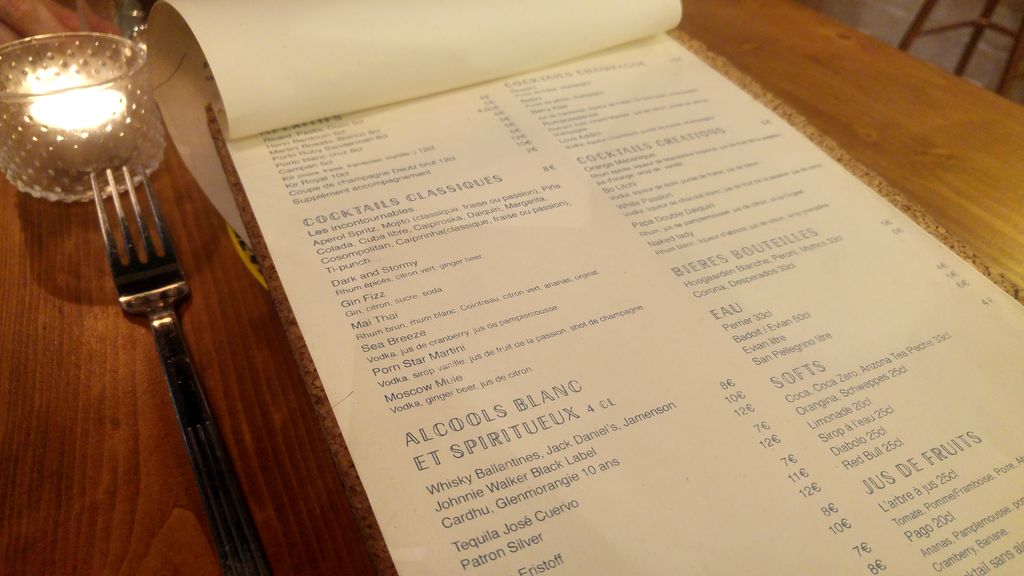 APERITIFS
Martini Rosato, Bianco 6cl
Porto Ruby Sandeman 6cl
Porto blanc, cruz 6cl
Campari 6cl
Kir Royal 10cl
Coupe de champagne Deutz brut 12cl
Supplément accompagnement
COCKTAILS CLASSIQUES 8€
Les incontournables...
Aperol Spritz, Mojito (classique, fraise ou passion), Piña
Colada, Cuba libre, Caipiroska, Daiquiri, Margarita,
Cosmopolitan, Caipirinha(classique, fraise ou passion),
Ti-punch...
Dark and Stormy
Rhum épicés, citron vert, ginger beer
Gin Fizz
Gin, citron, sucre, soda
Mai Thai
Rhum brun, rhum blanc, Cointreau, citron vert, ananas, orgeat
Sea Breeze
Vodka, jus de cranberry, jus de pamplemousse
Porn Star Martini
Vodka, sirop vanille, jus de fruit de la passion, shot de champagne
Moscow Mule
Vodka, ginger beer, jus de citron
ALCOOLS BLANC
ET SPIRITUEUX 4 CL
Whisky Ballantines, Jack Daniel's, Jamenson 8€
Johnnie Walker Black Label 10€
Cardhu, Glenmorangie 10 ans 12€
Tequila José Cuervo 7€
Patron Silver 12€
Eristoff 7€
11€
12€
8€
10€
7€
8€
COCKTAILS CHAMPAGNE
COCKTAILS CREATIONS
Orange Mécanique
So Litchi
White Passion
Papa Double Daiquiri
Naked lady
BIERES BOUTEILLES
Hoegaarden Blanche, Peroni, Mythos 33cl 5€
Corona, Desperados 33cl 6€
EAU
Perrier 33cl 4€
Badoit / Evian 50cl
Evian litre 6€
San Pellegrino litre
SOFTS 4€
Coca, Coca Zero, Arizona Tea Pêche 33cl
Orangina, Schweppes 25cl
Limonade 20cl
Sirop à l'eau 25cl
Diabolo 25cl
Red Bull 25cl
JUS DE FRUITS
L'arbre à jus 25cl
Tomate, Pomme/Framboise, Poire,
Pago 20cl
Ananas, Pamplemousse,
Cranberry, Banane